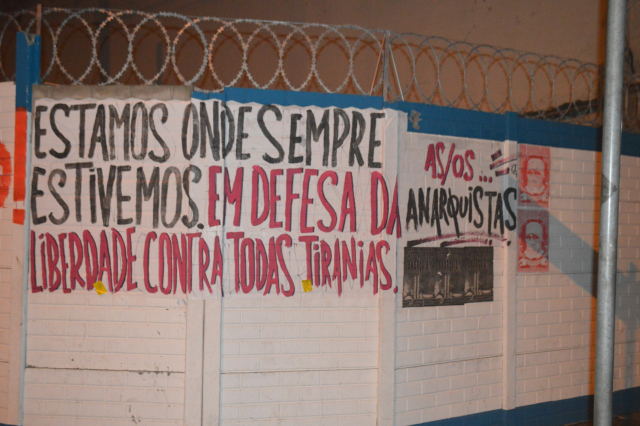 ESTAMOS ONDE SEMPRE
ESTIVEMOS. EM DEFESA DA
LIBERDADE CONTRA TODAS TIRANIAS.
AS/OS...
ANARQUISTAS